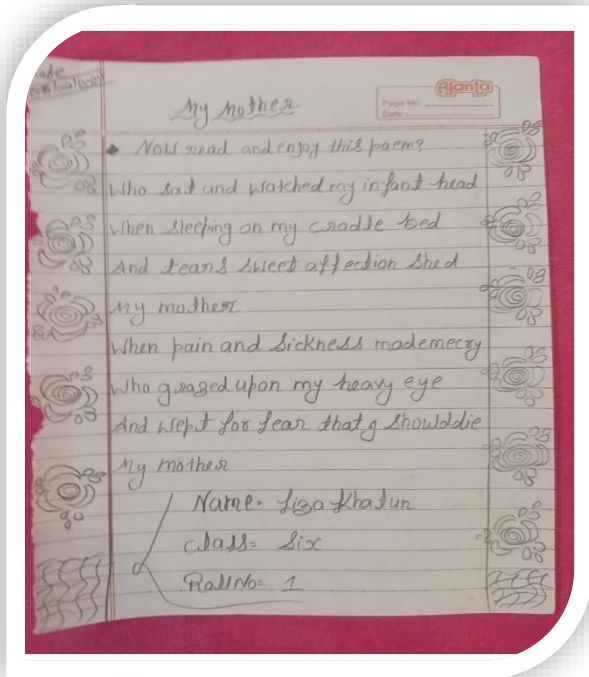 Date
Ajanta
Page No.
Date
My Mother
• Now read and enjoy this poem?
Who sat and watched my infant head
When sleeping on my cradle bed
And tears sweet affection shed
My mother
When pain and sickness mademecry
Who gzaged upon my heavy eye
And wept for fear that g showlddie
My mother
Name- Liza Khatun
Class= Six
RollNo= 1